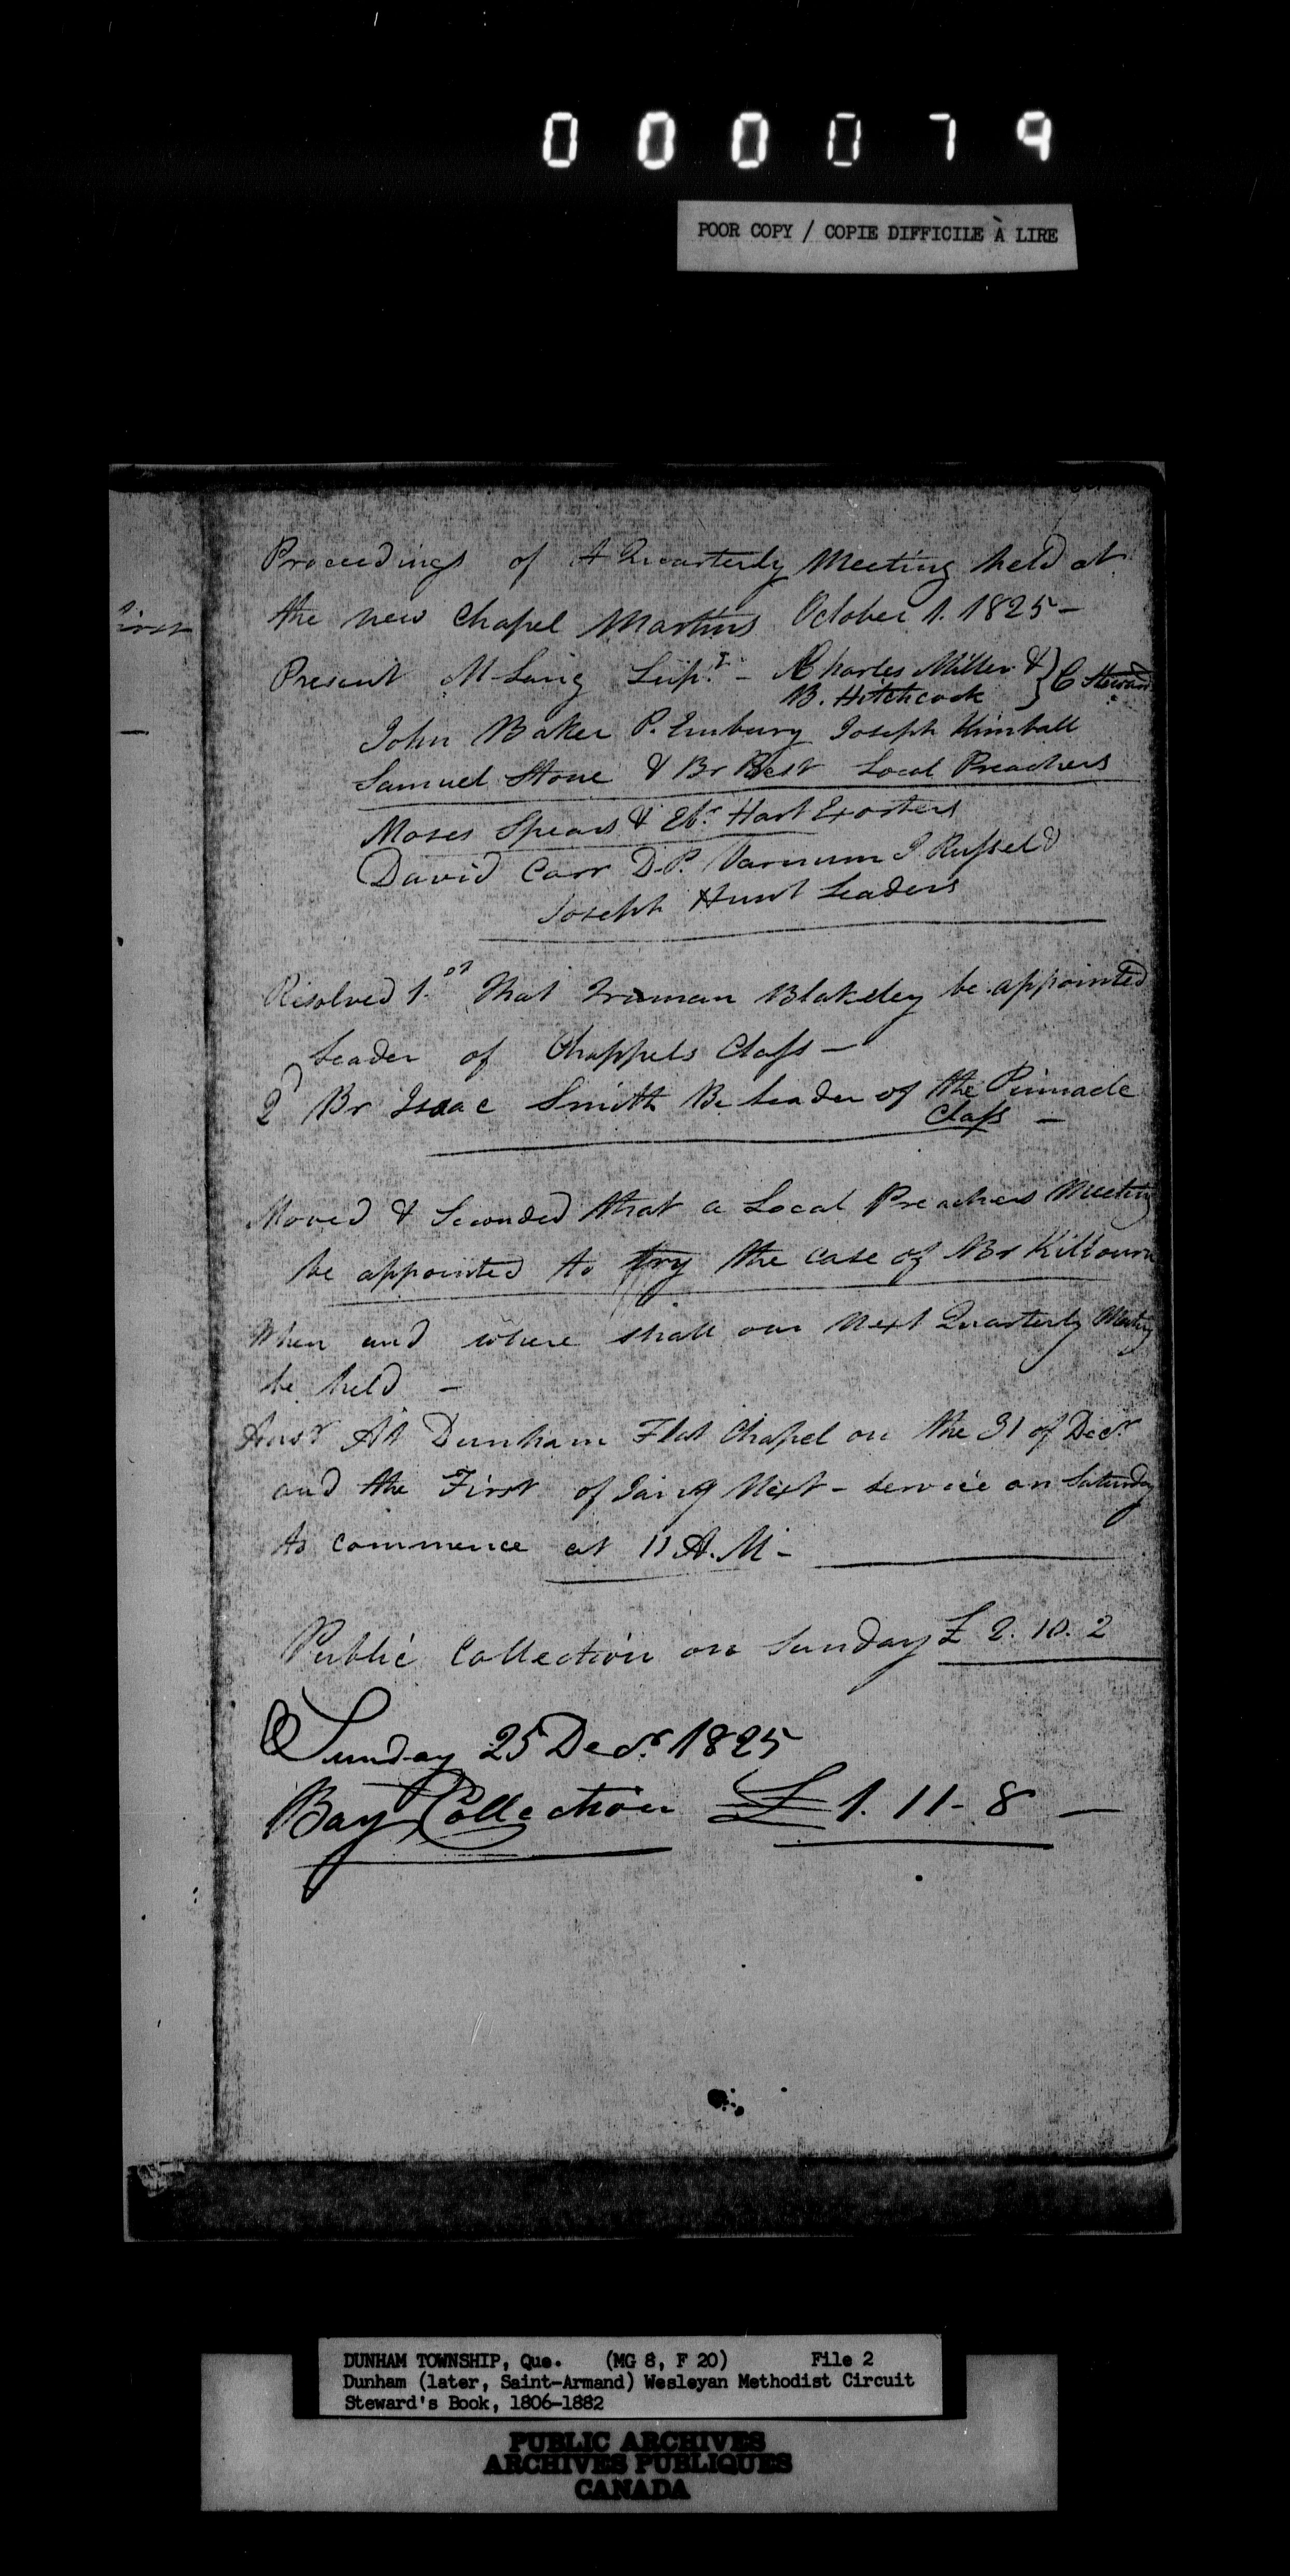 000079
POOR COPY / COPIE DIFFICILE À LIRE
Proceedings of A Quarterly Meeting held at
the new Chapel Martins October 1. 1825 -
Present M Lang Sup.t - Charles Miller & } C Steward
B. Hitchcock
John Baker P. Embury Joseph Kimball
Samuel Stone & Br Best Local Preachers
Moses Spears & Ebr Hart Exorters
David Carr D.P. Varnum J. Russel &
Joseph Hunt Leaders
Resolved 1.st That Truman Blakeley be appointed
Leader of Chappels Class -
2d Br Isaac Smith Be Leader of the Pinnacle
Class -
Moved & Seconded that a Local Preachers Meeting
be appointed to try the case of Br Kilbourn
When and where shall our Next Quarterly Meeting
be held -
Answr At Dunham Flat Chapel on the 31 of Decr
and the First of Jany Next - service on Saturday
to commence at 11 A.M -
Public Collection on Sunday £ 2. 10. 2
Sunday 25 Decr. 1825
Bay Collection £ 1. 11 - 8 -
DUNHAM TOWNSHIP, Que. (MG 8, F 20) File 2
Dunham (later, Saint-Armand) Wesleyan Methodist Circuit
Steward's Book, 1806-1882
PUBLIC ARCHIVES
ARCHIVES PUBLIQUES
CANADA